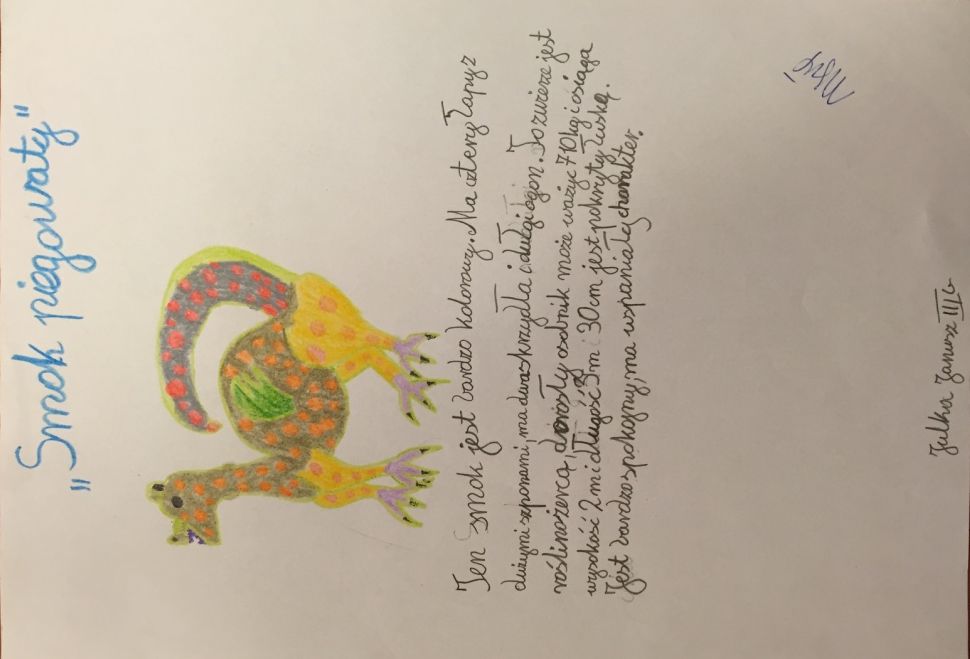 "Smok piegowaty"
Ten smok jest bardzo kolorowy. Ma cztery łapy z
dużymi szponami, ma dwa skrzydła i długi ogon. To zwierze jest
roślinożercą, dorosły osobnik może ważyć 710 kg i osiąga
wysokość 2 m i długość 3 m i 30 cm jest pokryty łuską.
Jest bardzo spokojny, ma wspaniały charakter.
Julka Janusz III